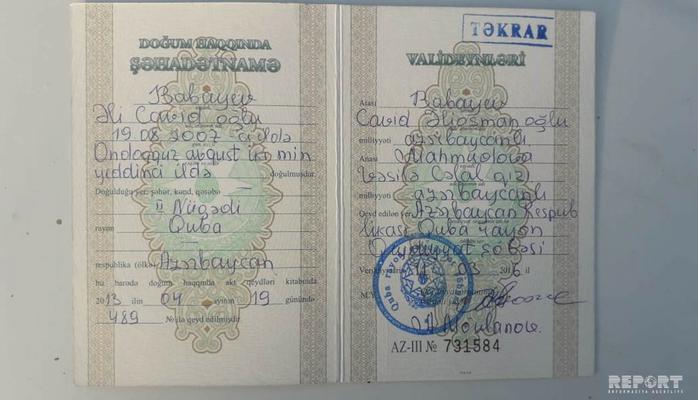 DOĞUM HAQQINDA
ŞƏHADƏTNAMƏ
Babayev
Əli Cavid oğlu
19.08.2007 ci ildə
Ondoqquz avqust iki min
yeddinci ildə doğulmuşdur.
Doğulduğu yer, şəhər, kənd, qəsəbə
II Nügədi
rayon Quba
respublika (ölkə) Azərbaycan
bu barədə doğum haqqında akt qeydləri kitabında
2013 ilin 04 ayının 19 günündə
489 №-də qeyd edilmişdir.
TƏKRAR
VALİDEYNLƏRİ
Atası Babayev
Cavid Əliosman oğlu
milliyyəti azərbaycanlı
Anası Mahmudova
Cəlal qızı
milliyyəti azərbaycanlı
Qeyd edilən yer Azərbaycan Respub
likası Quba rayon
Qeydiyyat şöbəsi
03 il
M.Y.
Quba rayon
AZ-III № 731584
REPORT
İNFORMASİYA AGENTLİYİ